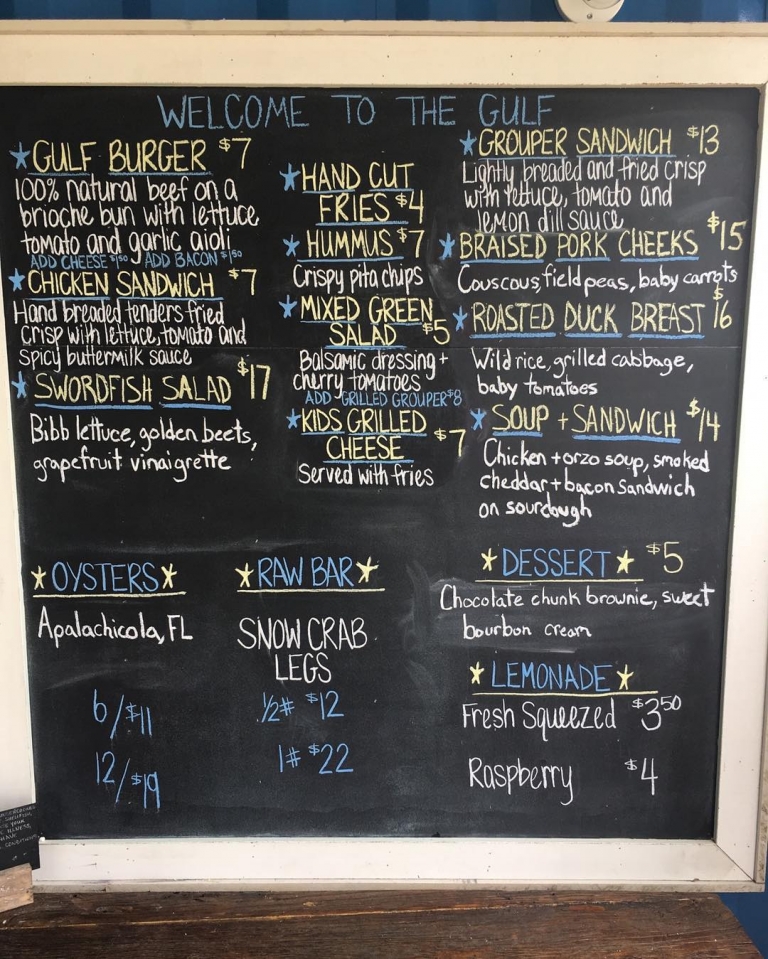 WELCOME TO THE GULF
GULF BURGER $7
100% natural beef on a
brioche bun with lettuce
tomato and garlic aioli
ADD CHEESE $1.50 ADD BACON $1.50
CHICKEN SANDWICH $7
Hand breaded tenders fried
crisp with lettuce, tomato and
spicy buttermilk sauce
SWORDFISH SALAD $17
Bibb lettuce, golden beets,
grapefruit vinaigrette
HAND CUT
FRIES $4
HUMMUS $7
Crispy pita chips
MIXED GREEN
SALAD $5
Balsamic dressing +
cherry tomatoes
ADD GRILLED GROUPER $8
KIDS GRILLED
CHEESE $7
Served with fries
GROUPER SANDWICH $13
Lightly breaded and fried crisp
with lettuce, tomato and
lemon dill sauce
BRAISED PORK CHEEKS $15
Couscous, field peas, baby carrots
ROASTED DUCK BREAST $16
Wild rice, grilled cabbage,
baby tomatoes
SOUP + SANDWICH $14
Chicken + orzo soup, smoked
cheddar + bacon sandwich
on sourdough
OYSTERS
Apalachicola, FL
6/$11
12/$19
RAW BAR
SNOW CRAB
LEGS
1/2# $12
1# $22
DESSERT $5
Chocolate chunk brownie, sweet
bourbon cream
LEMONADE
Fresh Squeezed $3.50
Raspberry $4